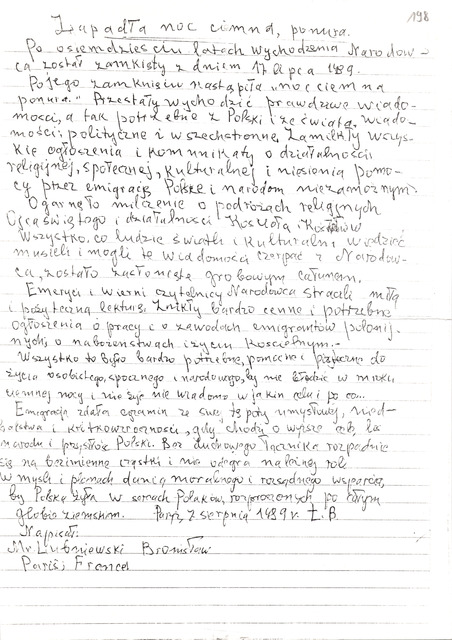 198
Zapadła noc ciemna, ponura.
Po osiemdziesciu latach wychodzenia Narodow-
ca został zamknięty z dniem 17 lipca 1989.
Po jego zamknięciu nastąpiła "noc ciemna
ponura." Przestały wychodzić prawdziwe wiado-
mości, a tak potrzebne z Polski i ze świata, wiado-
mości: polityczne i wszechstronne. Zamilkły wszys-
kie ogłoszenia i komunikaty o działalności
religijnej, społecznej, kulturalnej i niesienia pomo-
cy przez emigrację Polsce i narodom niezamożnym.
Ogarnęło milczenie o podróżach religijnych
Ojca świętego i działalności Kościoła
Wszystko, co ludzie światli i kulturalni wiedzieć
musieli i mogli te wiadomości czerpać z Narodow-
ca, zostało zasłonięte grobowym całunem.
Emeryci i wierni czytelnicy Narodowca stracili miłą
i pożyteczną lekturę. Znikły bardzo cenne i potrzebne
ogłoszenia o pracy i o zawodach emigrantów polonij-
nych, o nabożeństwach i życiu Kościelnym.-
Wszystko to było bardzo potrzebne, pomocne i pożyteczne do
życia osobistego, społecznego i narodowego, by nie błądzić w mroku
ciemnej nocy i nie żyć nie wiadomo w jakim celu i po co...
Emigracja zdała egzamin ze swej tępoty umysłowej, nied-
balstwa i krótkowzroczności, gdy chodzi o wyższe cele, la
narodu i przyszłość Polski. Bez duchowego łącznika rozpadnie
się na bezimienne cząstki i nie odegra należnej roli
w myśli i pieniach dania moralnego i rozsądnego wsparcia,
by Polska żyła w sercach Polaków, rozproszonych po całym
globie ziemskim. Paryż 7 sierpnia 1989 r. Ł. B.
Napisał:
Mr Lubniewski Bronisław
Paris, France